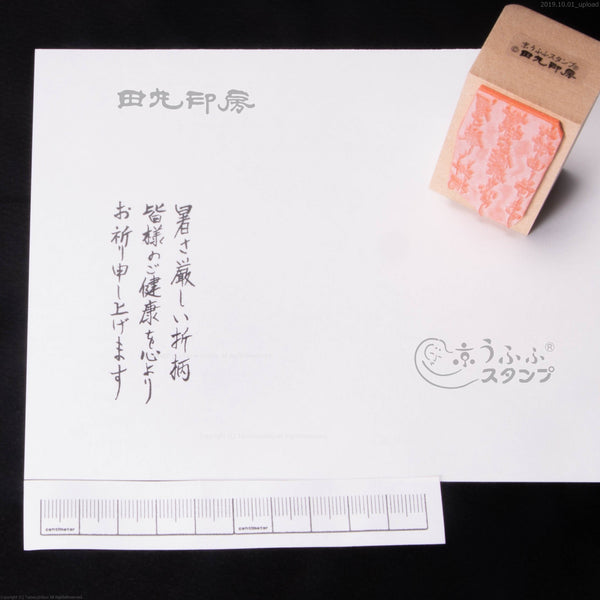 2019.10.01_upload
京うふふスタンプ®
©田丸印房
田丸印房
暑さ厳しい折柄
皆様のご健康を心より
お祈り申し上げます
京うふふ®
スタンプ
centimeter
centimeter